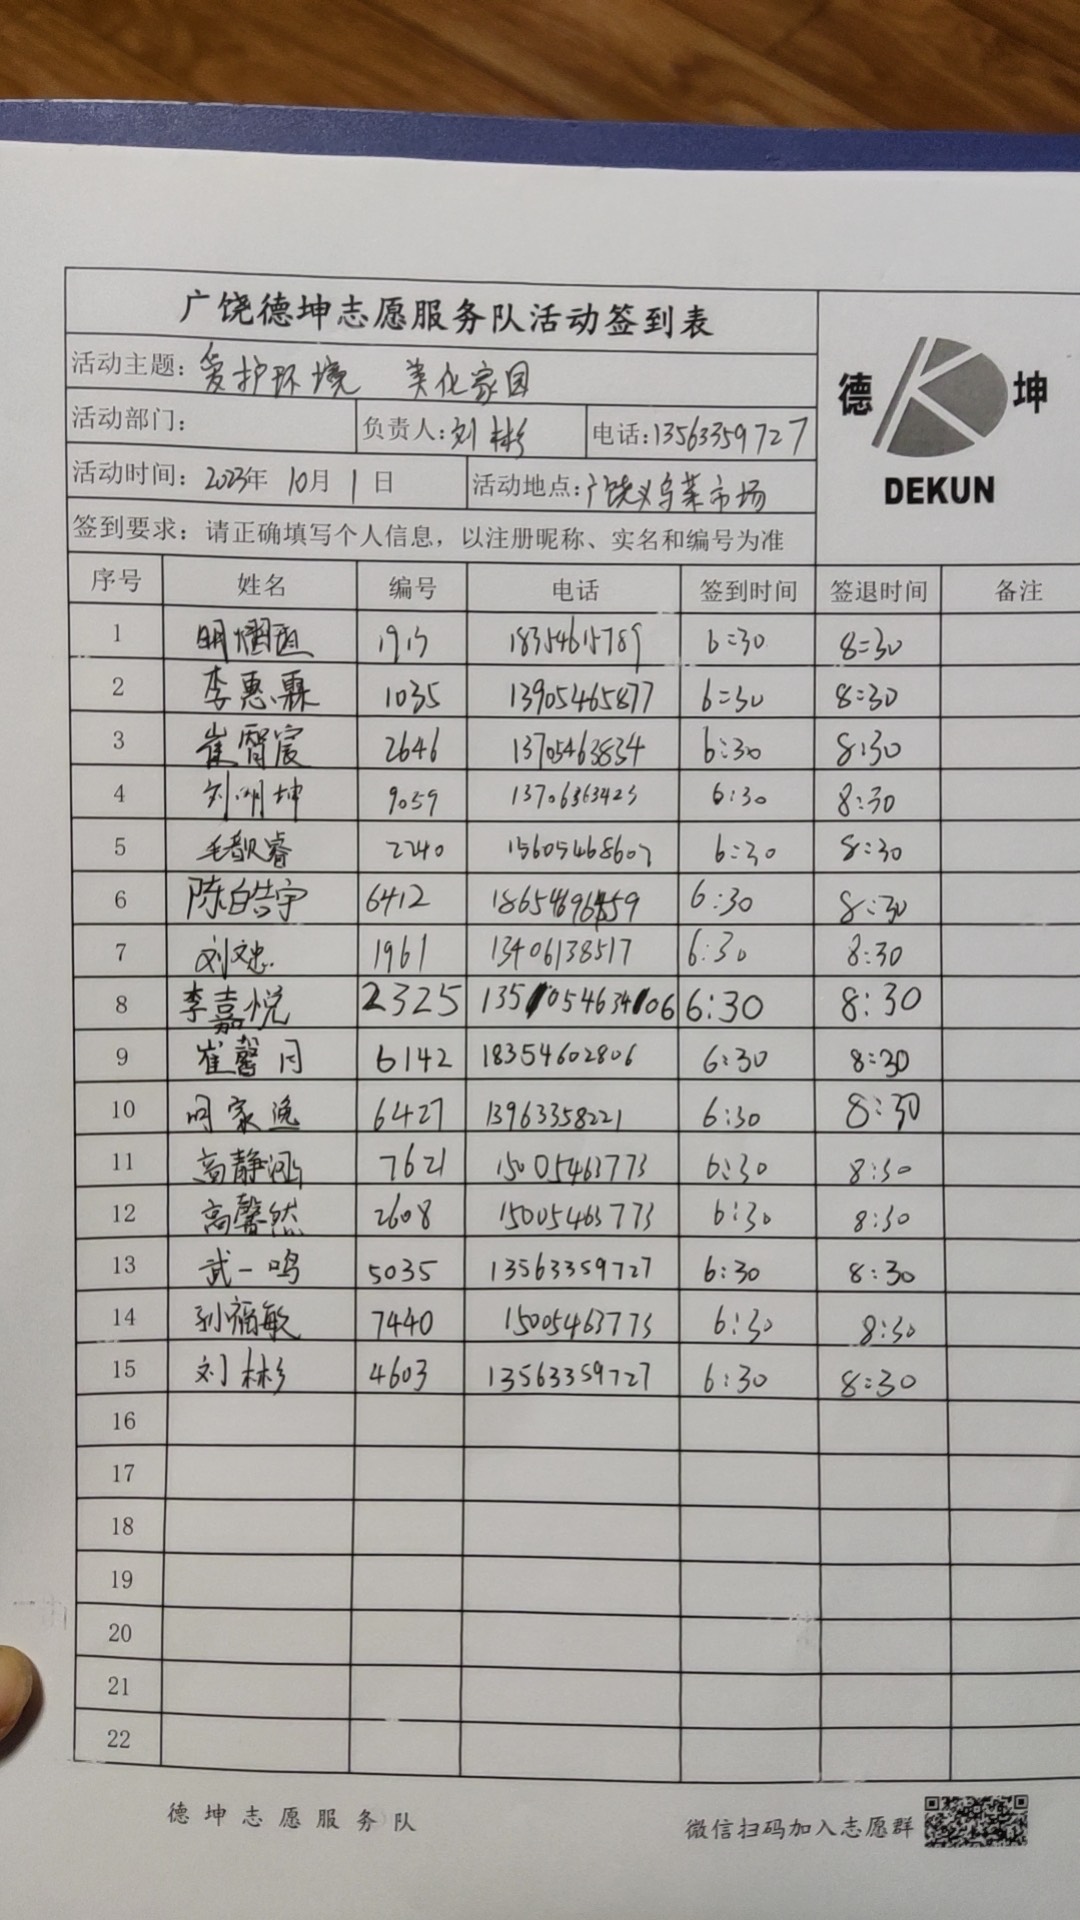 广饶德坤志愿服务队活动签到表
德 坤
DEKUN
活动主题：爱护环境 美化家园
活动部门： 负责人：刘彬 电话：13563359727
活动时间：2023年 10月 1日 活动地点：广饶义乌菜市场
签到要求：请正确填写个人信息，以注册昵称、实名和编号为准
序号 姓名 编号 电话 签到时间 签退时间 备注
1 1915 18354615789 6:30 8:30
2 李惠霖 1035 13905465877 6:30 8:30
3 崔宸 2646 13705463834 6:30 8:30
4 刘明坤 9059 13706363423 6:30 8:30
5 毛睿 2240 15605468607 6:30 8:30
6 陈皓宇 6412 6:30 8:30
7 刘文忠 1961 13406138517 6:30 8:30
8 李嘉悦 2325 6:30 8:30
9 崔馨月 6142 18354602806 6:30 8:30
10 家逸 6427 13963358221 6:30 8:30
11 高静涵 7621 15005463773 6:30 8:30
12 高馨然 2608 15005463773 6:30 8:30
13 武一鸣 5035 13563359727 6:30 8:30
14 孙福敏 7440 15005463773 6:30 8:30
15 刘彬 4603 13563359727 6:30 8:30
16
17
18
19
20
21
22
德坤志愿服务队 微信扫码加入志愿群